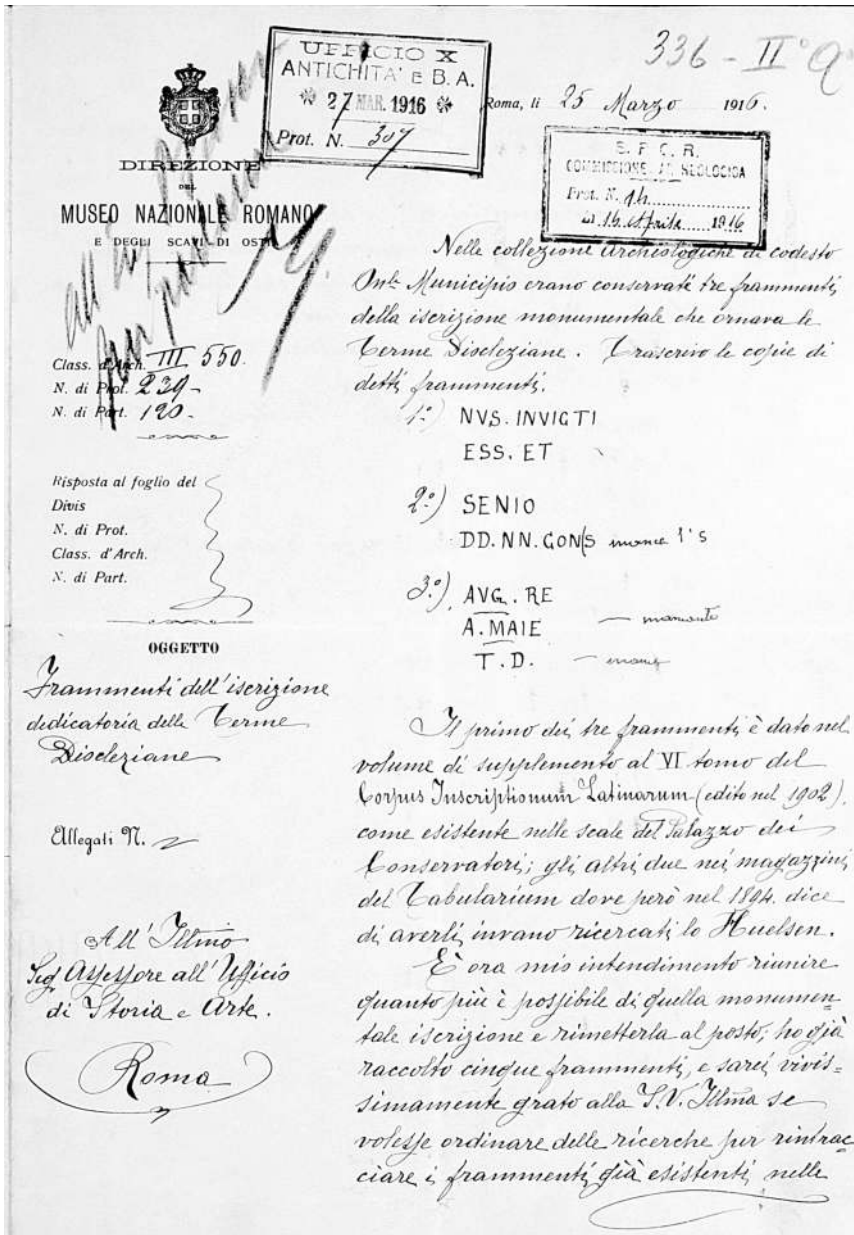 336 - II° a
UFFICIO X
ANTICHITA' E B. A.
27 MAR. 1916
Prot. N. 307
Roma, li 25 Marzo 1916.
S. P. Q. R.
COMMISSIONE ARCHEOLOGICA
Prot. N. 14
li 14 Aprile 1916
DIREZIONE
DEL
MUSEO NAZIONALE ROMANO
E DEGLI SCAVI DI OSTIA
Class. d'Arch. III 550.
N. di Prot. 239-
N. di Part. 120-
Risposta al foglio del
Divis
N. di Prot.
Class. d'Arch.
N. di Part.
OGGETTO
Frammenti dell'iscrizione
dedicatoria delle Terme
Diocleziane
Allegati N.
All' Illmo
Sig. Assessore all'Ufficio
di Storia e Arte.
Roma
Nelle collezione archeologiche di codesto
On.le Municipio erano conservati tre frammenti
della iscrizione monumentale che ornava le
Terme Diocleziane. Trascrivo le copie di
detti frammenti.
1°) NVS. INVICTI
ESS. ET
2°) SENIO
DD. NN. CONS manca l's
3°) AVG. RE
A. MAIE — mancante
T. D. — manca
Il primo dei tre frammenti è dato nel
volume di supplemento al VI tomo del
Corpus Inscriptionum Latinarum (edito nel 1902).
come esistente nelle scale del Palazzo dei
Conservatori; gli altri due nei magazzini
del Tabularium dove però nel 1894. dice
di averli invano ricercati lo Huelsen.
È ora mio intendimento riunire
quanto più è possibile di quella monumen=
tale iscrizione e rimetterla al posto; ho già
raccolto cinque frammenti, e sarei vivis=
simamente grato alla S.V. Illma se
volesse ordinare delle ricerche per rintrac
ciare i frammenti già esistenti nelle